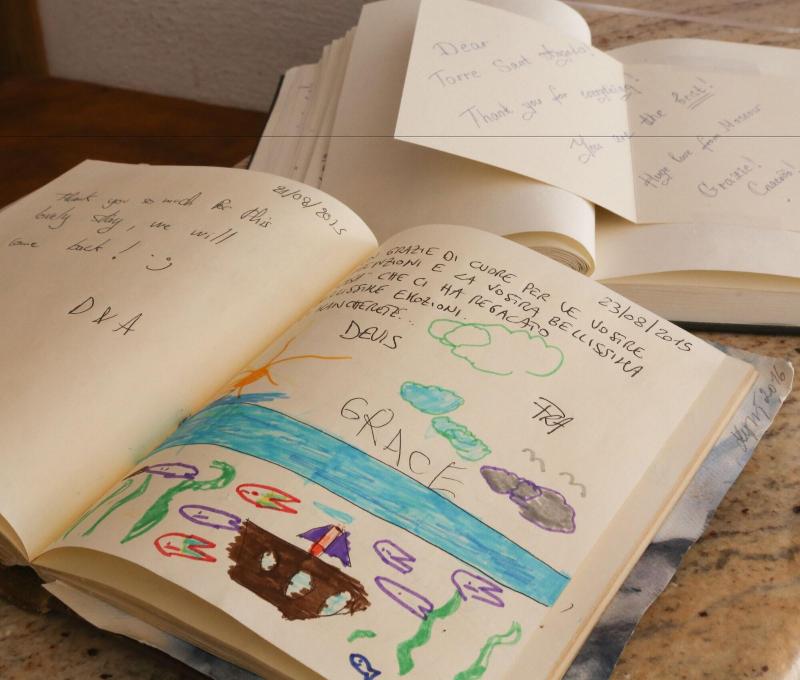 21/08/2015
Thank you so much for this
lovely stay, we will
come back! :)
D & A
23/08/2015
GRAZIE DI CUORE PER LE VOSTRE
E LA VOSTRA BELLISSIMA
CHE CI HA REGALATO
BELLISSIME EMOZIONI.
DEVIS
FRA
GRACE
Dear
Torre Sant Angelo!
Thank you for everything!
You are the best!
Huge love from
Grazie!
2016